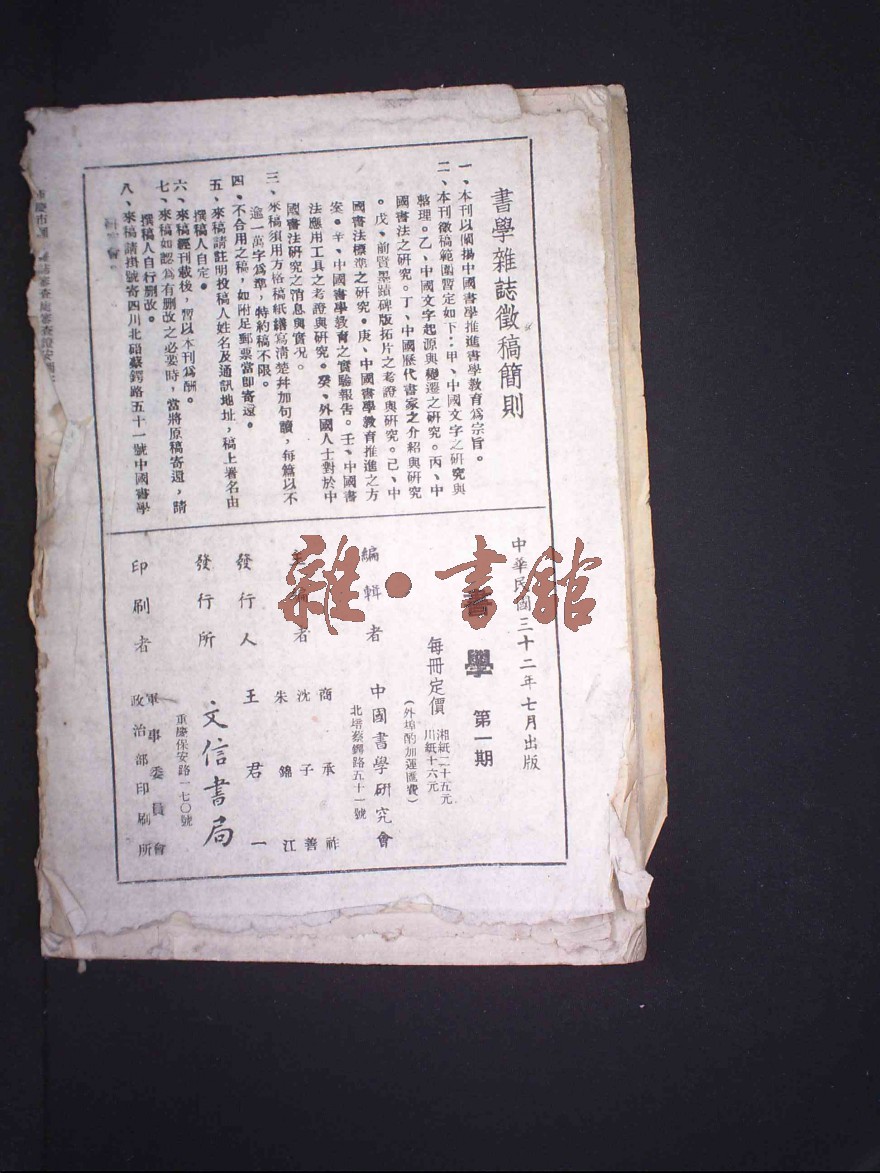 書學雜誌徵稿簡則
一、本刊以闡揚中國書學推進書學教育爲宗旨。
二、本刊徵稿範圍暫定如下：甲、中國文字之研究與
整理。乙、中國文字起源與變遷之研究。丙、中
國書法之研究。丁、中國歷代書家之介紹與研究
。戊、前賢墨蹟碑版拓片之考證與研究。己、中
國書法標準之研究。庚、中國書學教育推進之方
案。辛、中國書學教育之實驗報告。壬、中國書
法應用工具之考證與研究。癸、外國人士對於中
國書法研究之消息與實況。
三、來稿須用方格稿紙繕寫清楚幷加句讀，每篇以不
逾一萬字爲準，特約稿不限。
四、不合用之稿，如附足郵票當卽寄還。
五、來稿請註明投稿人姓名及通訊地址，稿上署名由
撰稿人自定。
六、來稿經刊載後，暫以本刊爲酬。
七、來稿如認爲有删改之必要時，當將原稿寄還，請
撰稿人自行删改。
八、來稿請掛號寄四川北碚蔡鍔路五十一號中國書學
研究會。
中華民國三十二年七月出版
書學 第一期
每冊定價 湘紙二十五元
川紙十六元
（外埠酌加運匯費）
編輯者 中國書學研究會
北碚蔡鍔路五十一號
主編者 商承祚
沈子善
朱錦江
發行人 王君一
發行所 文信書局
重慶保安路一七〇號
印刷者 軍事委員會
政治部印刷所
雜·書館